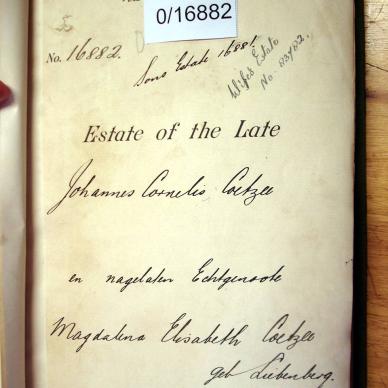 0/16882
No. 16882.
Sons Estate 16881
Wife's Estate
No.
Estate of the Late
Johannes Cornelis Coetzee
en nagelaten Echtgenoote
Magdalena Elisabeth Coetzee
geb Liebenberg.